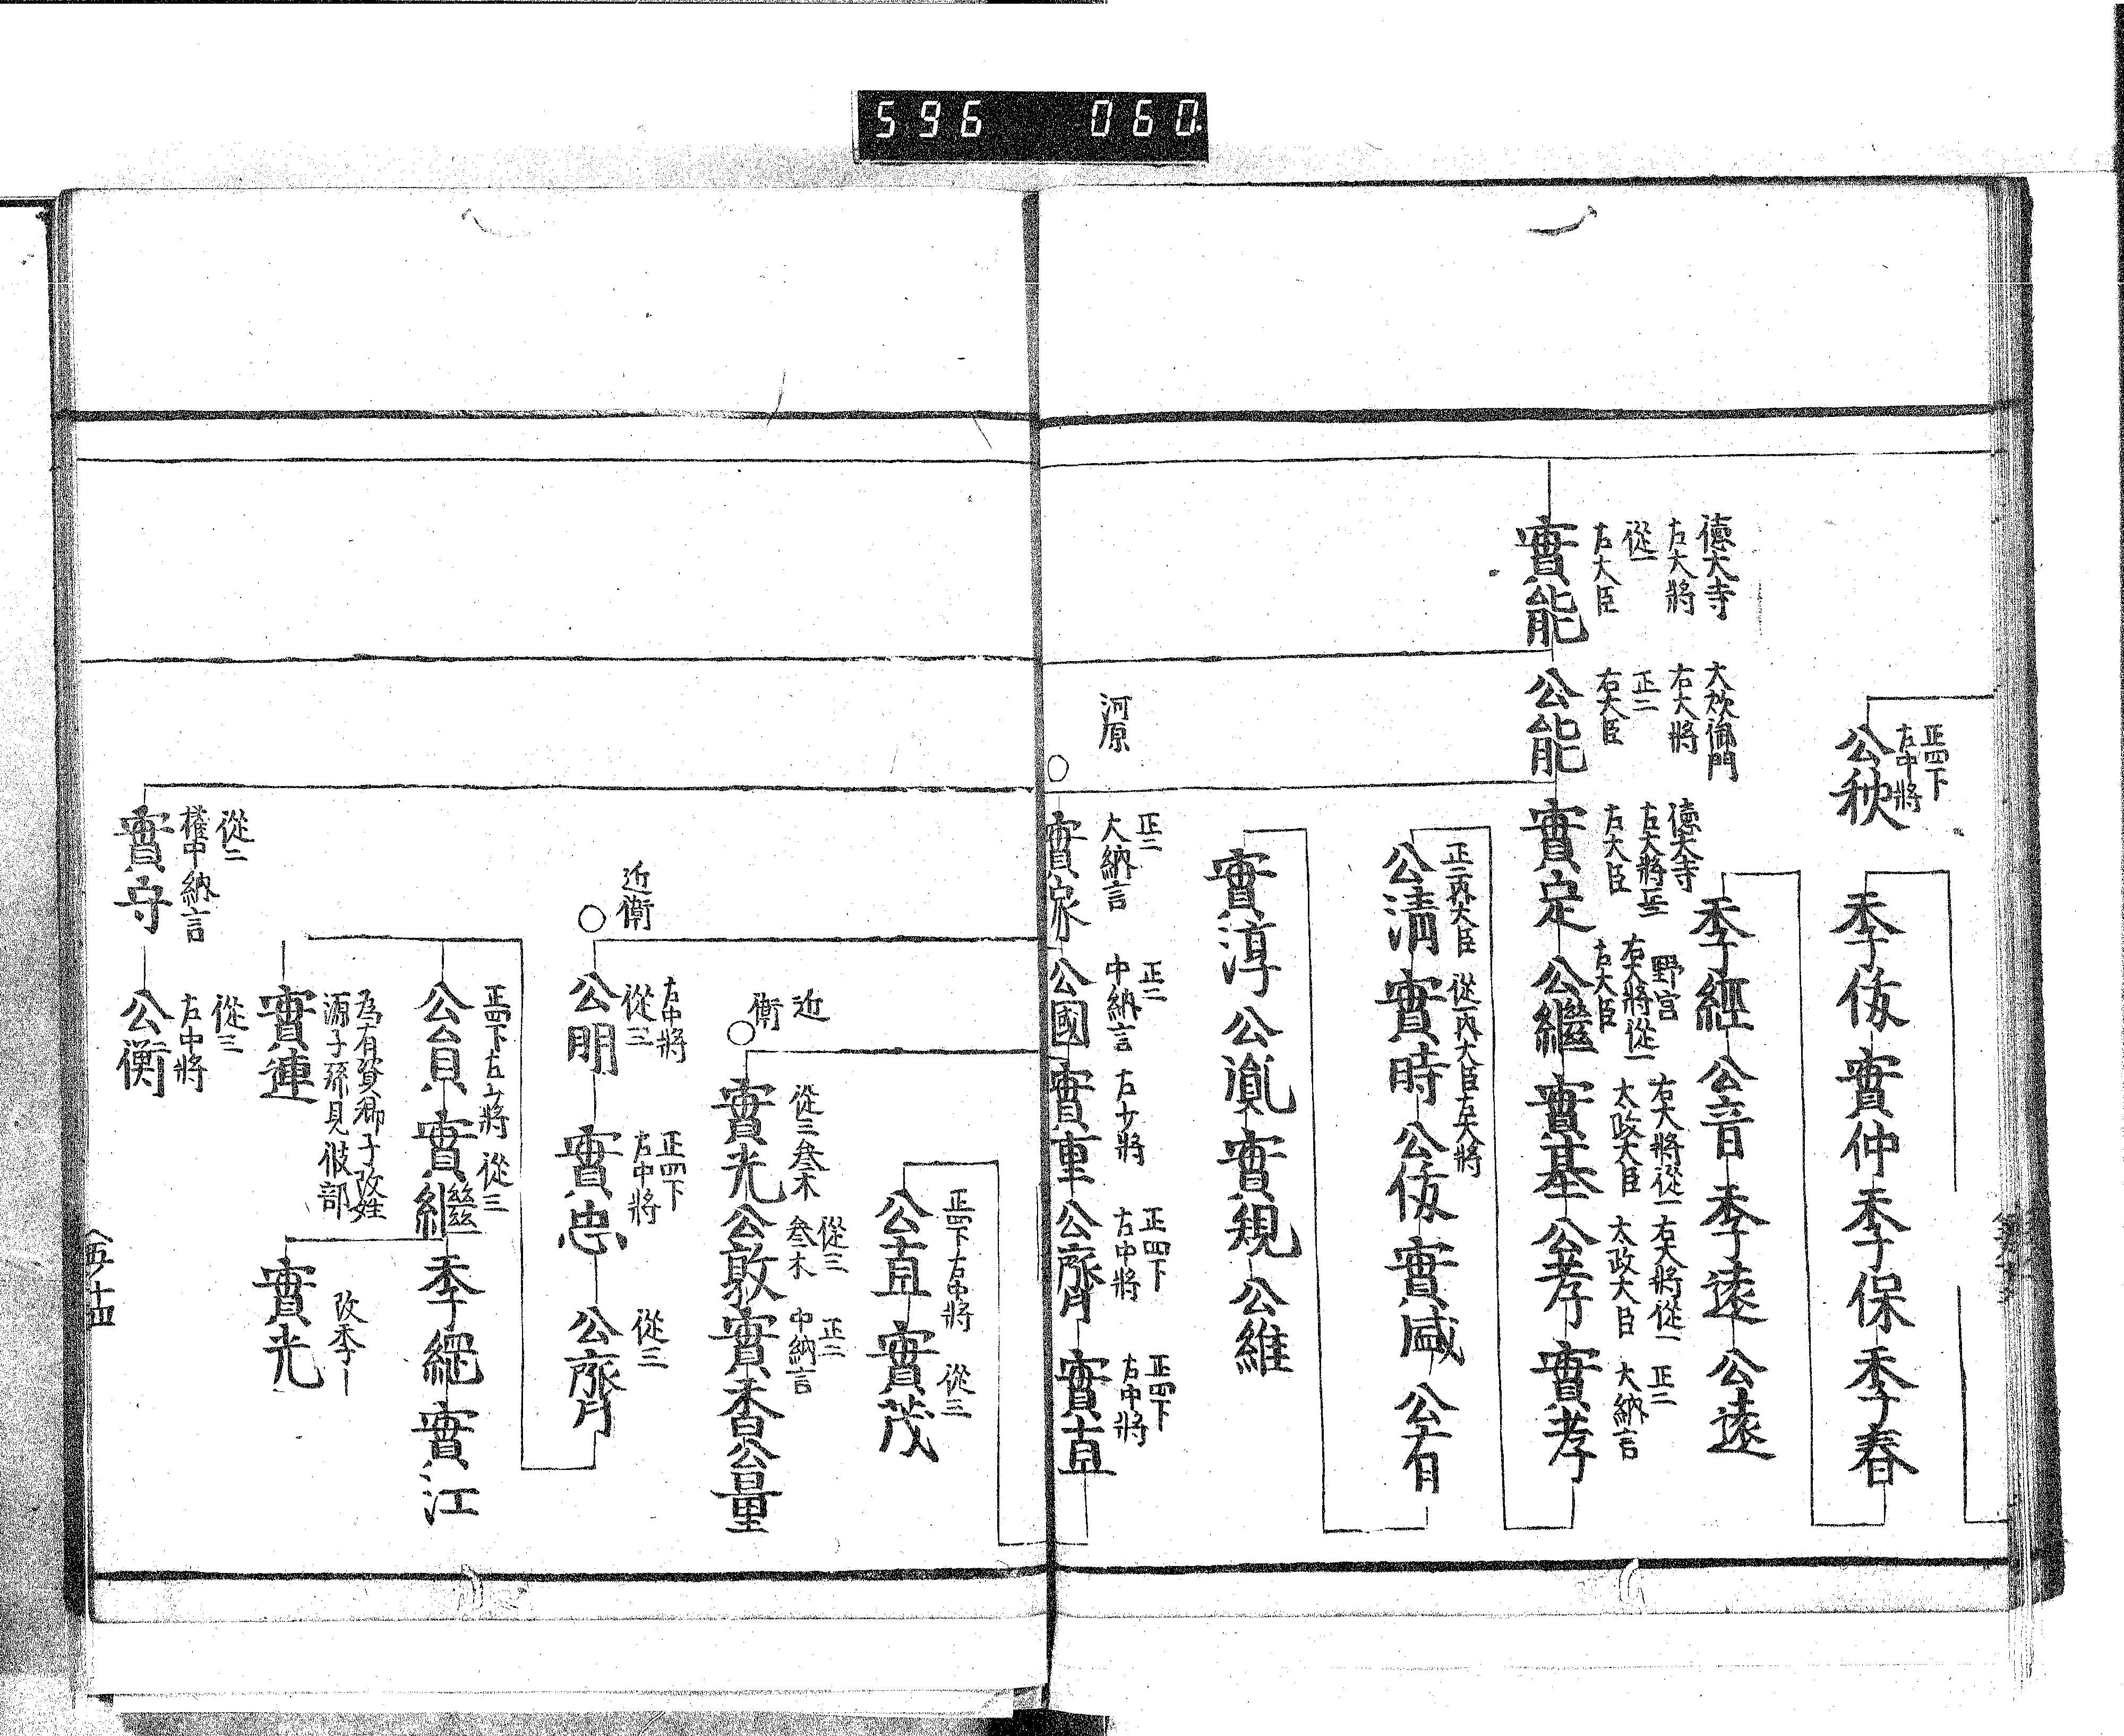 596 060
正四下
左中將
公秧
季俊 實仲 季保 季春
季經 公音 季遠 公遠
德大寺
左大將
從一
左大臣
實能
大炊御門
右大將
正二
右大臣
公能
德大寺
左大將正二
左大臣
實定
野宮
右大將從一
左大臣
公繼
右大將從一
太政大臣
實基
右大將從一
太政大臣
公孝
正二
大納言
實孝
正二內大臣
公清
從一內大臣左大將
實時 公俊 實盛 公有
實淳 公胤 實規 公維
河原
正二
大納言
實家
正二
中納言
公國
右少將
實重
正四下
右中將
公齊
正四下
右中將
實直
正四下右中將
公直
從三
實茂
近衛
從三參木
實光
從三
參木
公敦
正二
中納言
實香 公量
近衛
左中將
從三
公明
正四下
左中將
實忠
從三
公齊
正四下左少將
公貟
從三
實繼 季綱 實江
為有資卿子改姓
源子孫見彼部
實連
改季一
實光
從二
權中納言
實守
從三
左中將
公衡
五ノ十四